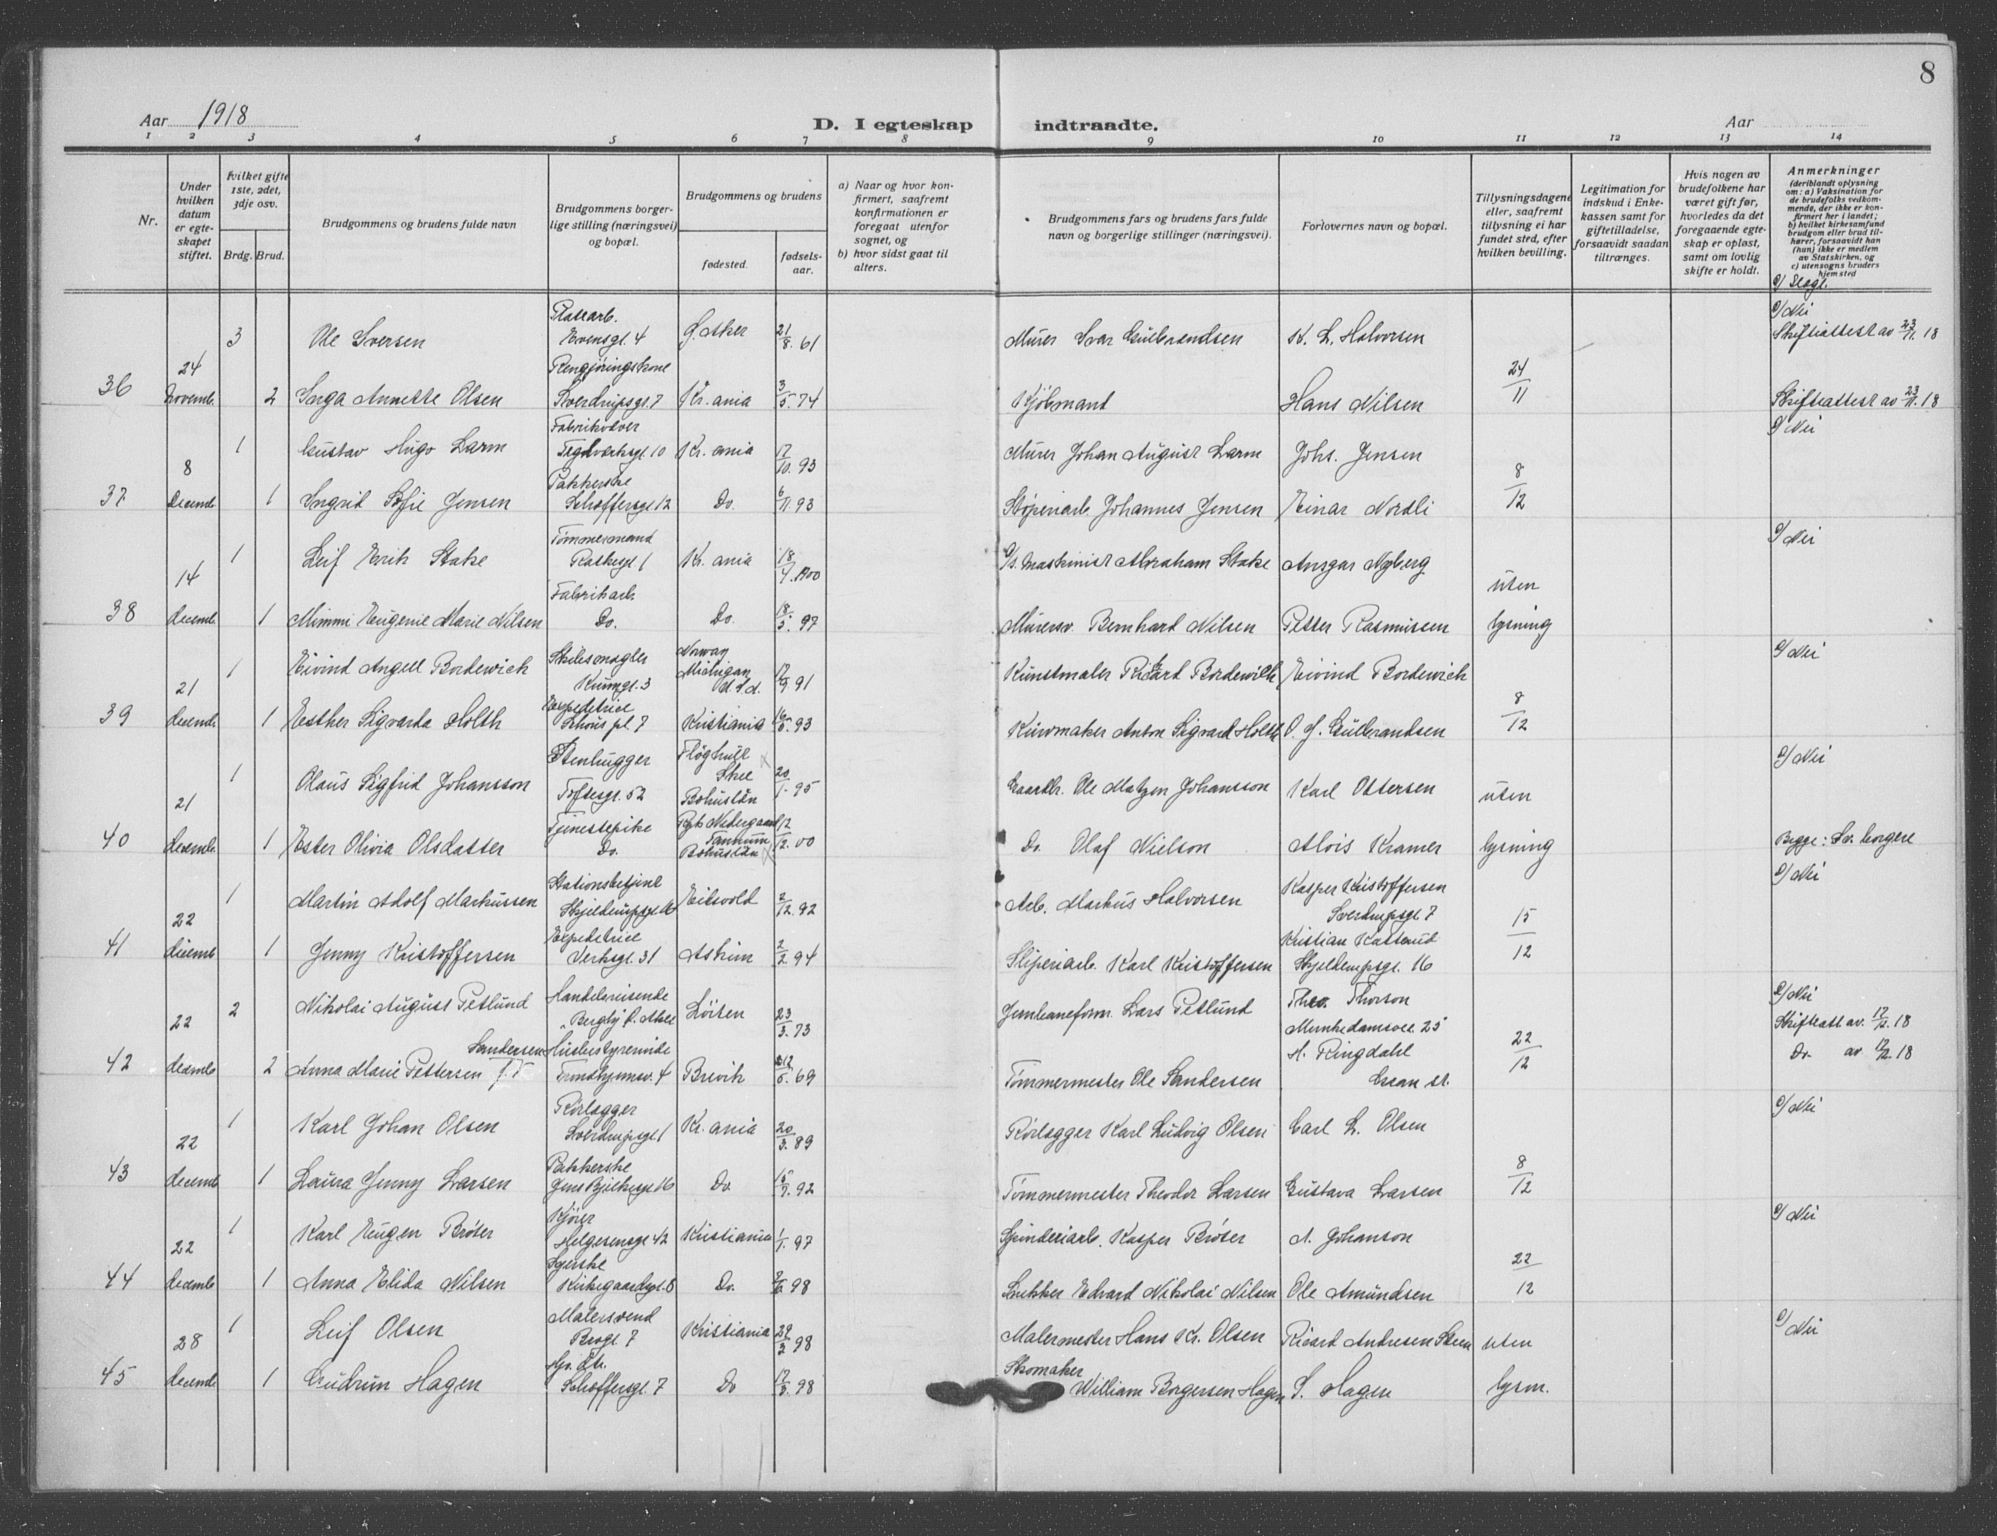 8
Aar 1918
D. I egteskap indtraadte.
Aar
1 2 3 4 5 6 7 8 9 10 11 12 13 14
Nr.
Under hvilken datum er egteskapet stiftet.
Hvilket gifte 1ste, 2det, 3dje osv.
Brdg. Brud.
Brudgommens og brudens fulde navn
Brudgommens borgerlige stilling (næringsvei) og bopæl.
Brudgommens og brudens
fødested.
fødselsaar.
a) Naar og hvor konfirmert, saafremt konfirmationen er foregaat utenfor sognet, og
b) hvor sidst gaat til alters.
Brudgommens fars og brudens fars fulde navn og borgerlige stillinger (næringsvei).
Forlovernes navn og bopæl.
Tillysningsdagene eller, saafremt tillysning ei har fundet sted, efter hvilken bevilling.
Legitimation for indskud i Enkekassen samt for giftetilladelse, forsaavidt saadan tiltrænges.
Hvis nogen av brudefolkene har været gift før, hvorledes da det foregaaende egteskap er opløst, samt om lovlig skifte er holdt.
Anmerkninger
(deriblandt oplysning om: a) Vaksination for de brudefolks vedkommende, der ikke er konfirmert her i landet;
b) hvilket kirkesamfund brudgom eller brud tilhører, forsaavidt han (hun) ikke er medlem av Statskirken, og
c) utensogns bruders hjemsted
c/ Slegt.
36 24 Novemb. 3 Ole Iversen Platearb. Evensgt. 4 Ø. Aker 21/8. 61 Murer Ivar Gulbrandsen K. L. Halvorsen 24/11 c/ Nei Skifteattest av 23/11. 18
2 Inga Annette Olsen Rengjøringskone Sverdrupsgt. 7 Kr. ania 3/5. 74 Kjøbmand Hans Nilsen Skifteattest av 23/11. 18
37 8 Decemb 1 Gustav Hugo Larm Teglverksgt. 10 Kr. ania 17/10. 93 Murer Johan August Larm Johs. Jensen 8/12 c/ Nei
1 Ingrid Sofie Jensen Pakkerske Schoffersgt. 12 Do. 6/11. 93 Støperiarb. Johannes Jensen Einar Nordli
38 14 decemb 1 Leif Erik Stake Tømmermand Rathesgt 1 Kr. ania 18/4. 1900 Maskinist Abraham Stake Ansgar Nyberg uten lysning c/ Nei
1 Mimmi Eugenie Marie Nilsen Fabrikarb. Do. Do. 18/5. 97 Murersv. Bernhard Nilsen Petter Rasmussen
39 21 decemb 1 Eivind Angell Bordewich Skibsmægler 3 Norway Michigan 17/9 91 Kunstmaler Rikard Bordewich Eivind Bordewich 8/12 c/ Nei
1 Esther Sigvarda Holth Expeditrice Schous pl. 7 Kristiania 16/5. 93 Kurvmaker Anton Sigvard Holth O. J. Gulbrandsen
40 21 decemb 1 Olaus Sigfrid Johansson Stenhugger Toftesgt. 52 Skee Bohuslän 20/1. 95 Gaardbr. Ole Matzen Johansson Karl Ottersen uten lysning c/ Nei
1 Ester Olivia Olsdatter Tjenestepike Do. Tannum Bohuslän 12/12. 00 Do. Olaf Nielson Alois Kramer Begge: Sv. borgere
41 22 decemb 1 Martin Adolf Markussen Stationsbetjent Skjeldrupsgt. 16 Eidsvold 2/12. 92 Arb. Markus Halvorsen Kasper Kristoffersen Sverdrupsgt. 7 15/12 c/ Nei
1 Jenny Kristoffersen Expeditrice Verksgt. 31 Askim 2/2 94 Sliperiarb. Karl Kristoffersen Kristian Kasterud Skjeldrupsgt. 16
42 22 decemb 2 Nikolai August Petlund Handelsreisende „Bergly" Ø. Aker Løiten 23/3. 73 Jernbaneform. Lars Petlund Theo. Thorson Munkedamsvei. 25 22/12 c/ Nei Skifteatt. av. 17/12. 18
2 Anna Marie Pettersen f. Sandersen Husbestyrerinde Trondhjemsv. 4 Brevik 5. 69 Tømmermester Ole Sandersen H. Ringdahl Do. av 17/12. 18
43 22 decemb 1 Karl Johan Olsen Rørlægger Sverdrupsgt. 1 Kr. ania 20/3. 89 Rørlægger Karl Ludvig Olsen Carl L. Olsen 8/12 c/ Nei
1 Laura Jenny Larsen Pakkerske Jens Bjelkesgt 16 Do. 15/9. 92 Tømmermester Theodor Larsen Gustava Larsen
44 22 decemb 1 Karl Eugen Brøter Kjører Helgesensgt 42 Kristiania 1/1. 97 Spinderiarb. Kasper Brøter A. Johanson 22/12 c/ Nei
1 Anna Elida Nilsen Syerske Kirkegaardsgt. 8 Do. 98 Snekker Edvard Nikolai Nilsen Ole Amundsen
45 28 decemb 1 Leif Olsen Malersvend Bergt. 7 Kristiania 98 Malermester Hans Kr. Olsen Rikard Andresen uten lysn. c/ Nei
1 Gudrun Hagen Schoffersgt. 7 Do 17/3. 98 Skomaker William Borgersen Hagen S. Hagen